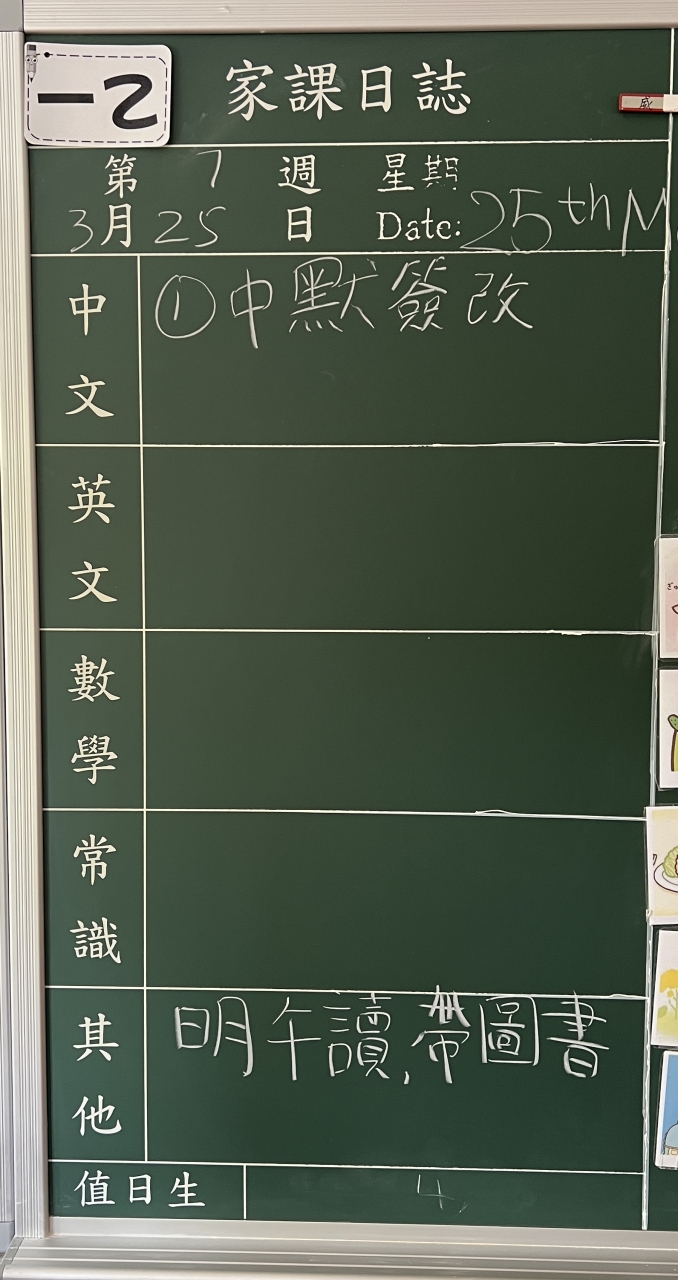 家課日誌
第 7 週 星期
3月 25 日 Date: 25th M
中文 ①中默簽改
英文
數學
常識
其他 明午讀,帶圖書
值日生 4